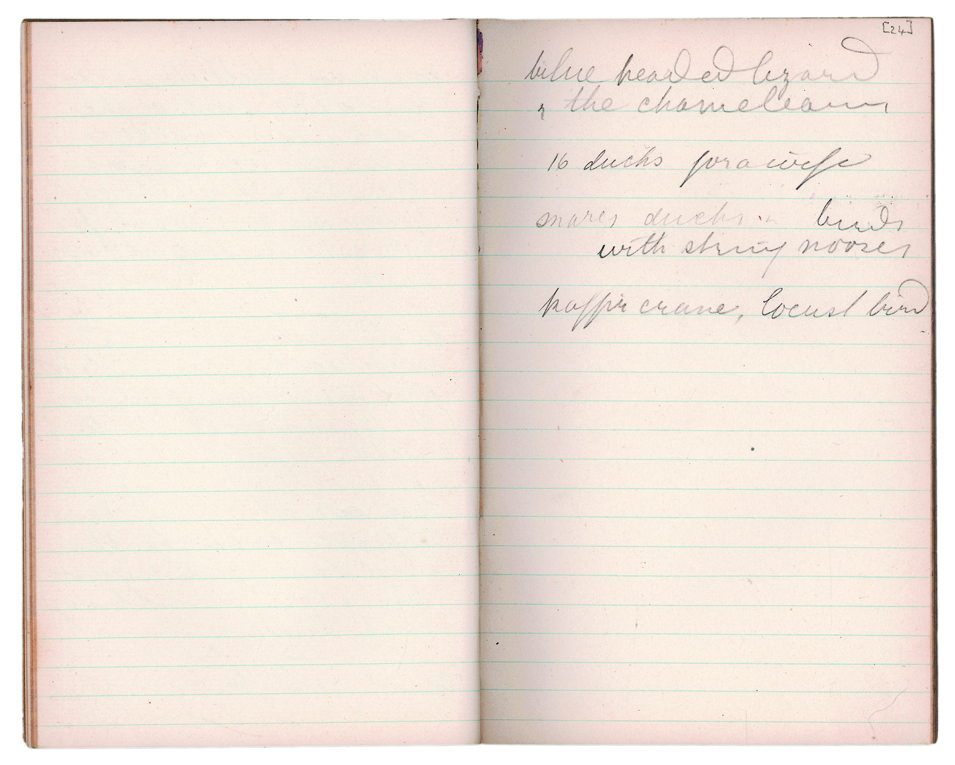 [24]
blue headed lizard
& the chameleon
16 ducks for a wife
snares ducks & birds
with string nooses
kaffir crane, locust bird